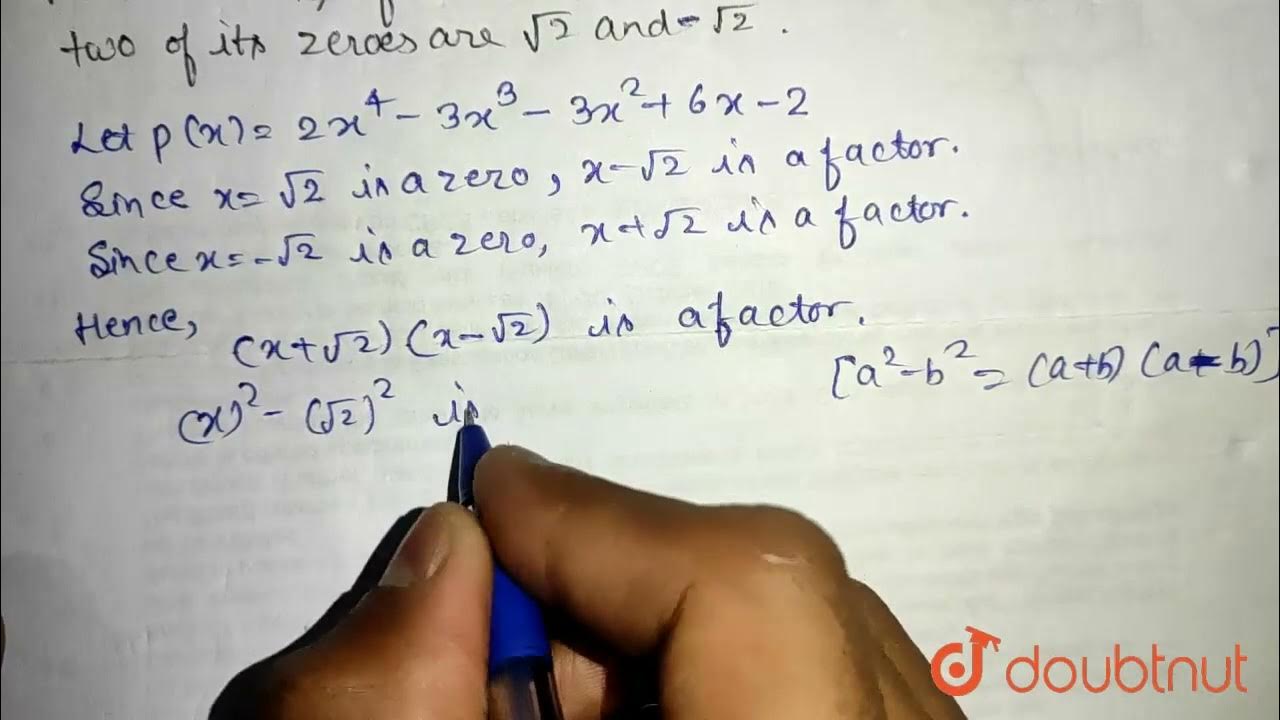 two of its zeroes are √2 and -√2 .
Let p(x) = 2x⁴ - 3x³ - 3x² + 6x - 2
Since x = √2 is a zero , x - √2 is a factor.
Since x = -√2 is a zero, x + √2 is a factor.
Hence,
(x+√2) (x-√2) is a factor.
[a² - b² = (a+b) (a-b)]
(x)² - (√2)² is
doubtnut